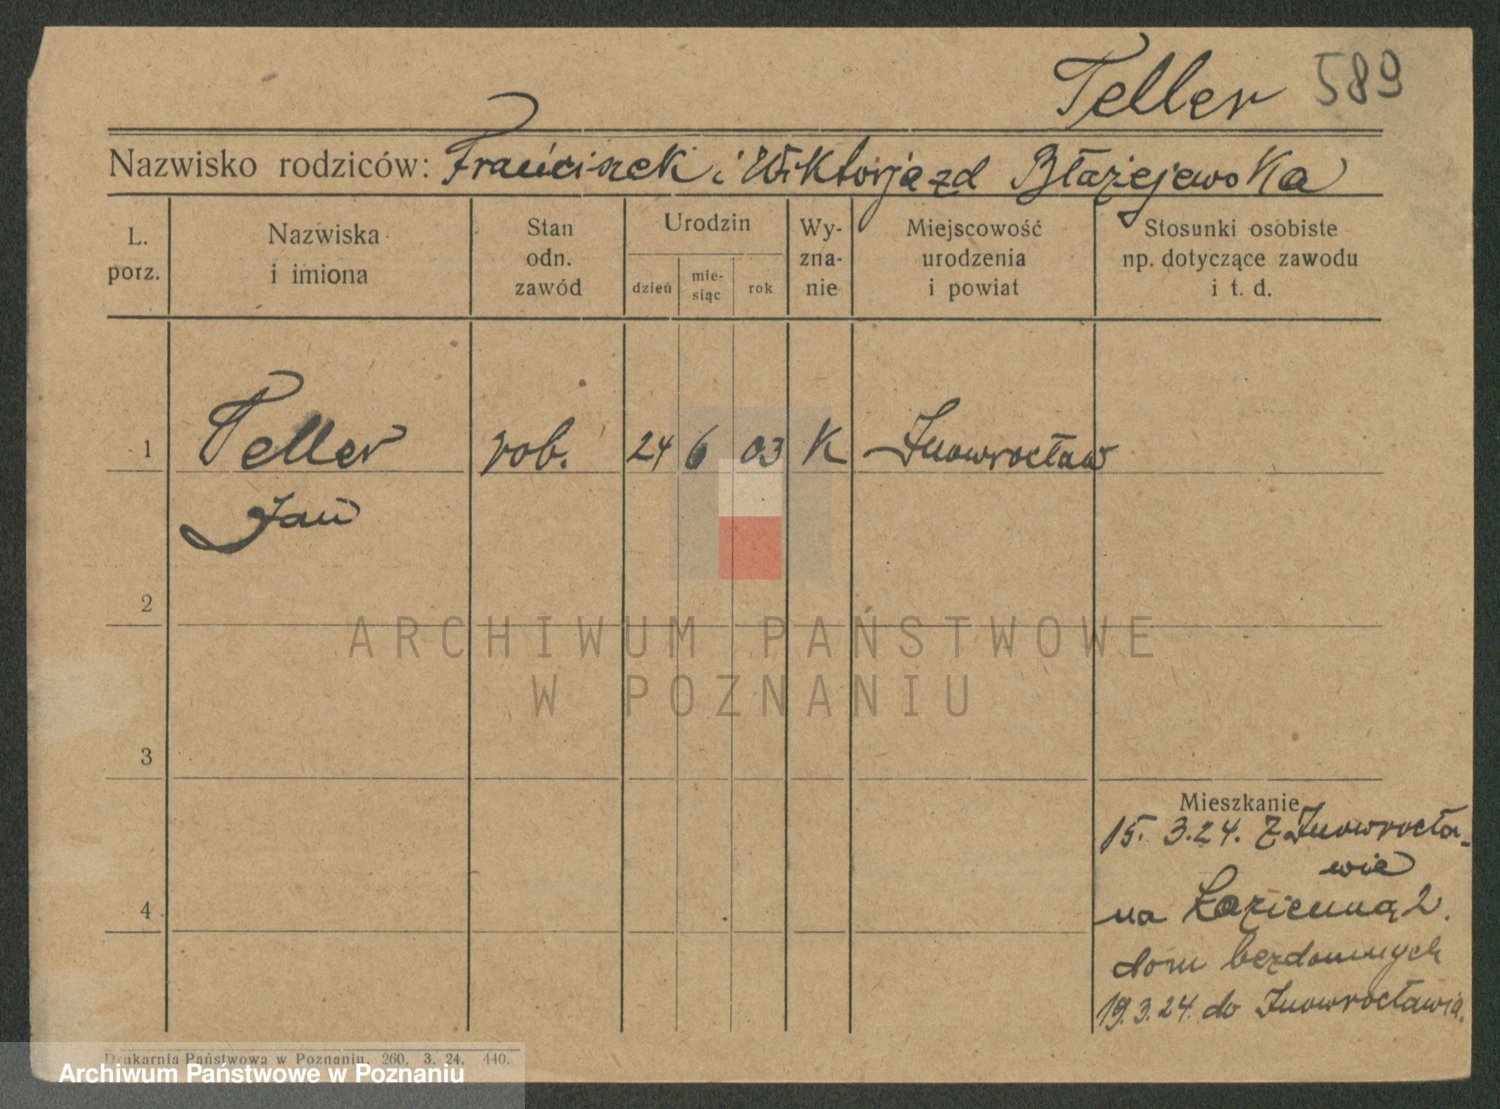 Teller 589
Nazwisko rodziców: Franciszek i Wiktorja zd Błażejewska
L. porz.
Nazwiska i imiona
Stan odn. zawód
Urodzin
dzień
mie-siąc
rok
Wy-zna-nie
Miejscowość urodzenia i powiat
Stosunki osobiste np. dotyczące zawodu i t. d.
1 Teller rob. 24 6 03 K Inowrocław
Jan
2
ARCHIWUM PAŃSTWOWE
W POZNANIU
3
Mieszkanie
15. 3.24. z Inowrocła-
wia
4
na Łazienną 2.
dom bezdomnych
19.3.24. do Inowrocławia.
Drukarnia Państwowa w Poznaniu. 260. 3. 24. 440.
Archiwum Państwowe w Poznaniu